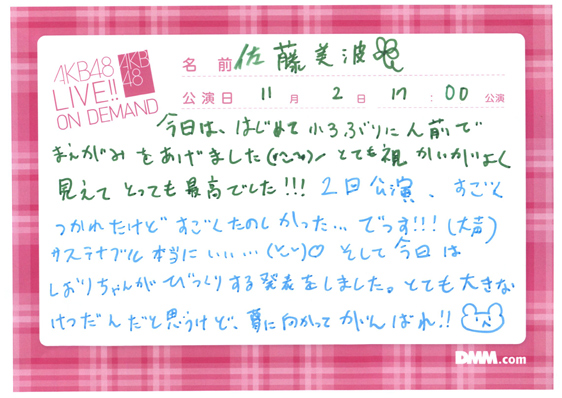 AKB48
LIVE!!
ON DEMAND
AKB
48
名 前 佐藤美波
公演日 11月 2日 17:00 公演
今日は、はじめて小3ぶりに人前で
まえがみをあげました(˶ᵔᵕᵔ˶)ノ とても視かいがよく
見えて とっても最高でした!!! 2回公演、すごく
つかれたけど すごくたのしかった... でっす!!!(大声)
サステナブル 本当にいい...(ᵕᴗᵕ)♡ そして今日は
しおりちゃんが びっくりする発表をしました。とても大きな
けつだんだと思うけど、夢に向かって がんばれ!!
DMM.com